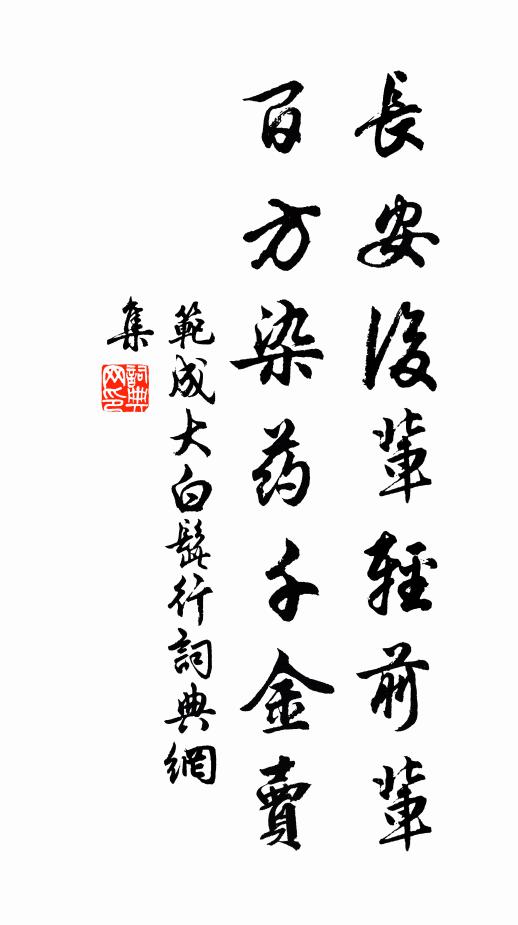 長安後輩輕前輩
百方染药千金賣
範成大白髭行詞典網
集
詞典
网印